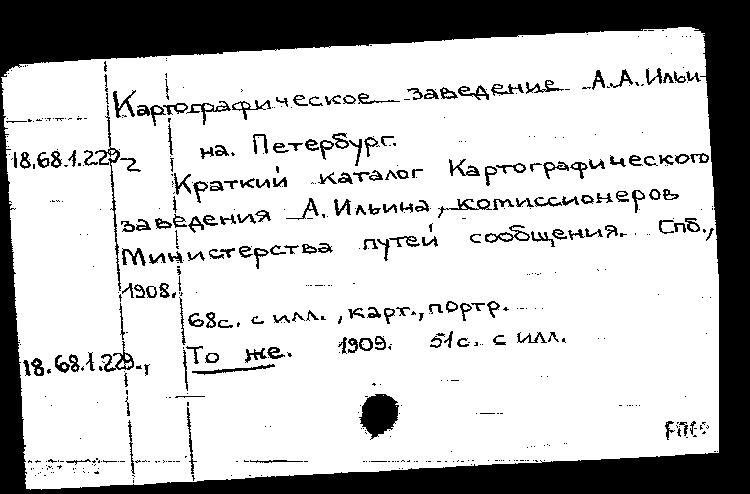 Картографическое заведение А.А.Ильи-
на. Петербург.
18.68.1.229-2
Краткий каталог Картографического
заведения А.Ильина, комиссионеров
Министерства путей сообщения. Спб.,
1908.
68с. с илл., карт., портр.
18.68.1.229-1 То же. 1909. 51с. с илл.